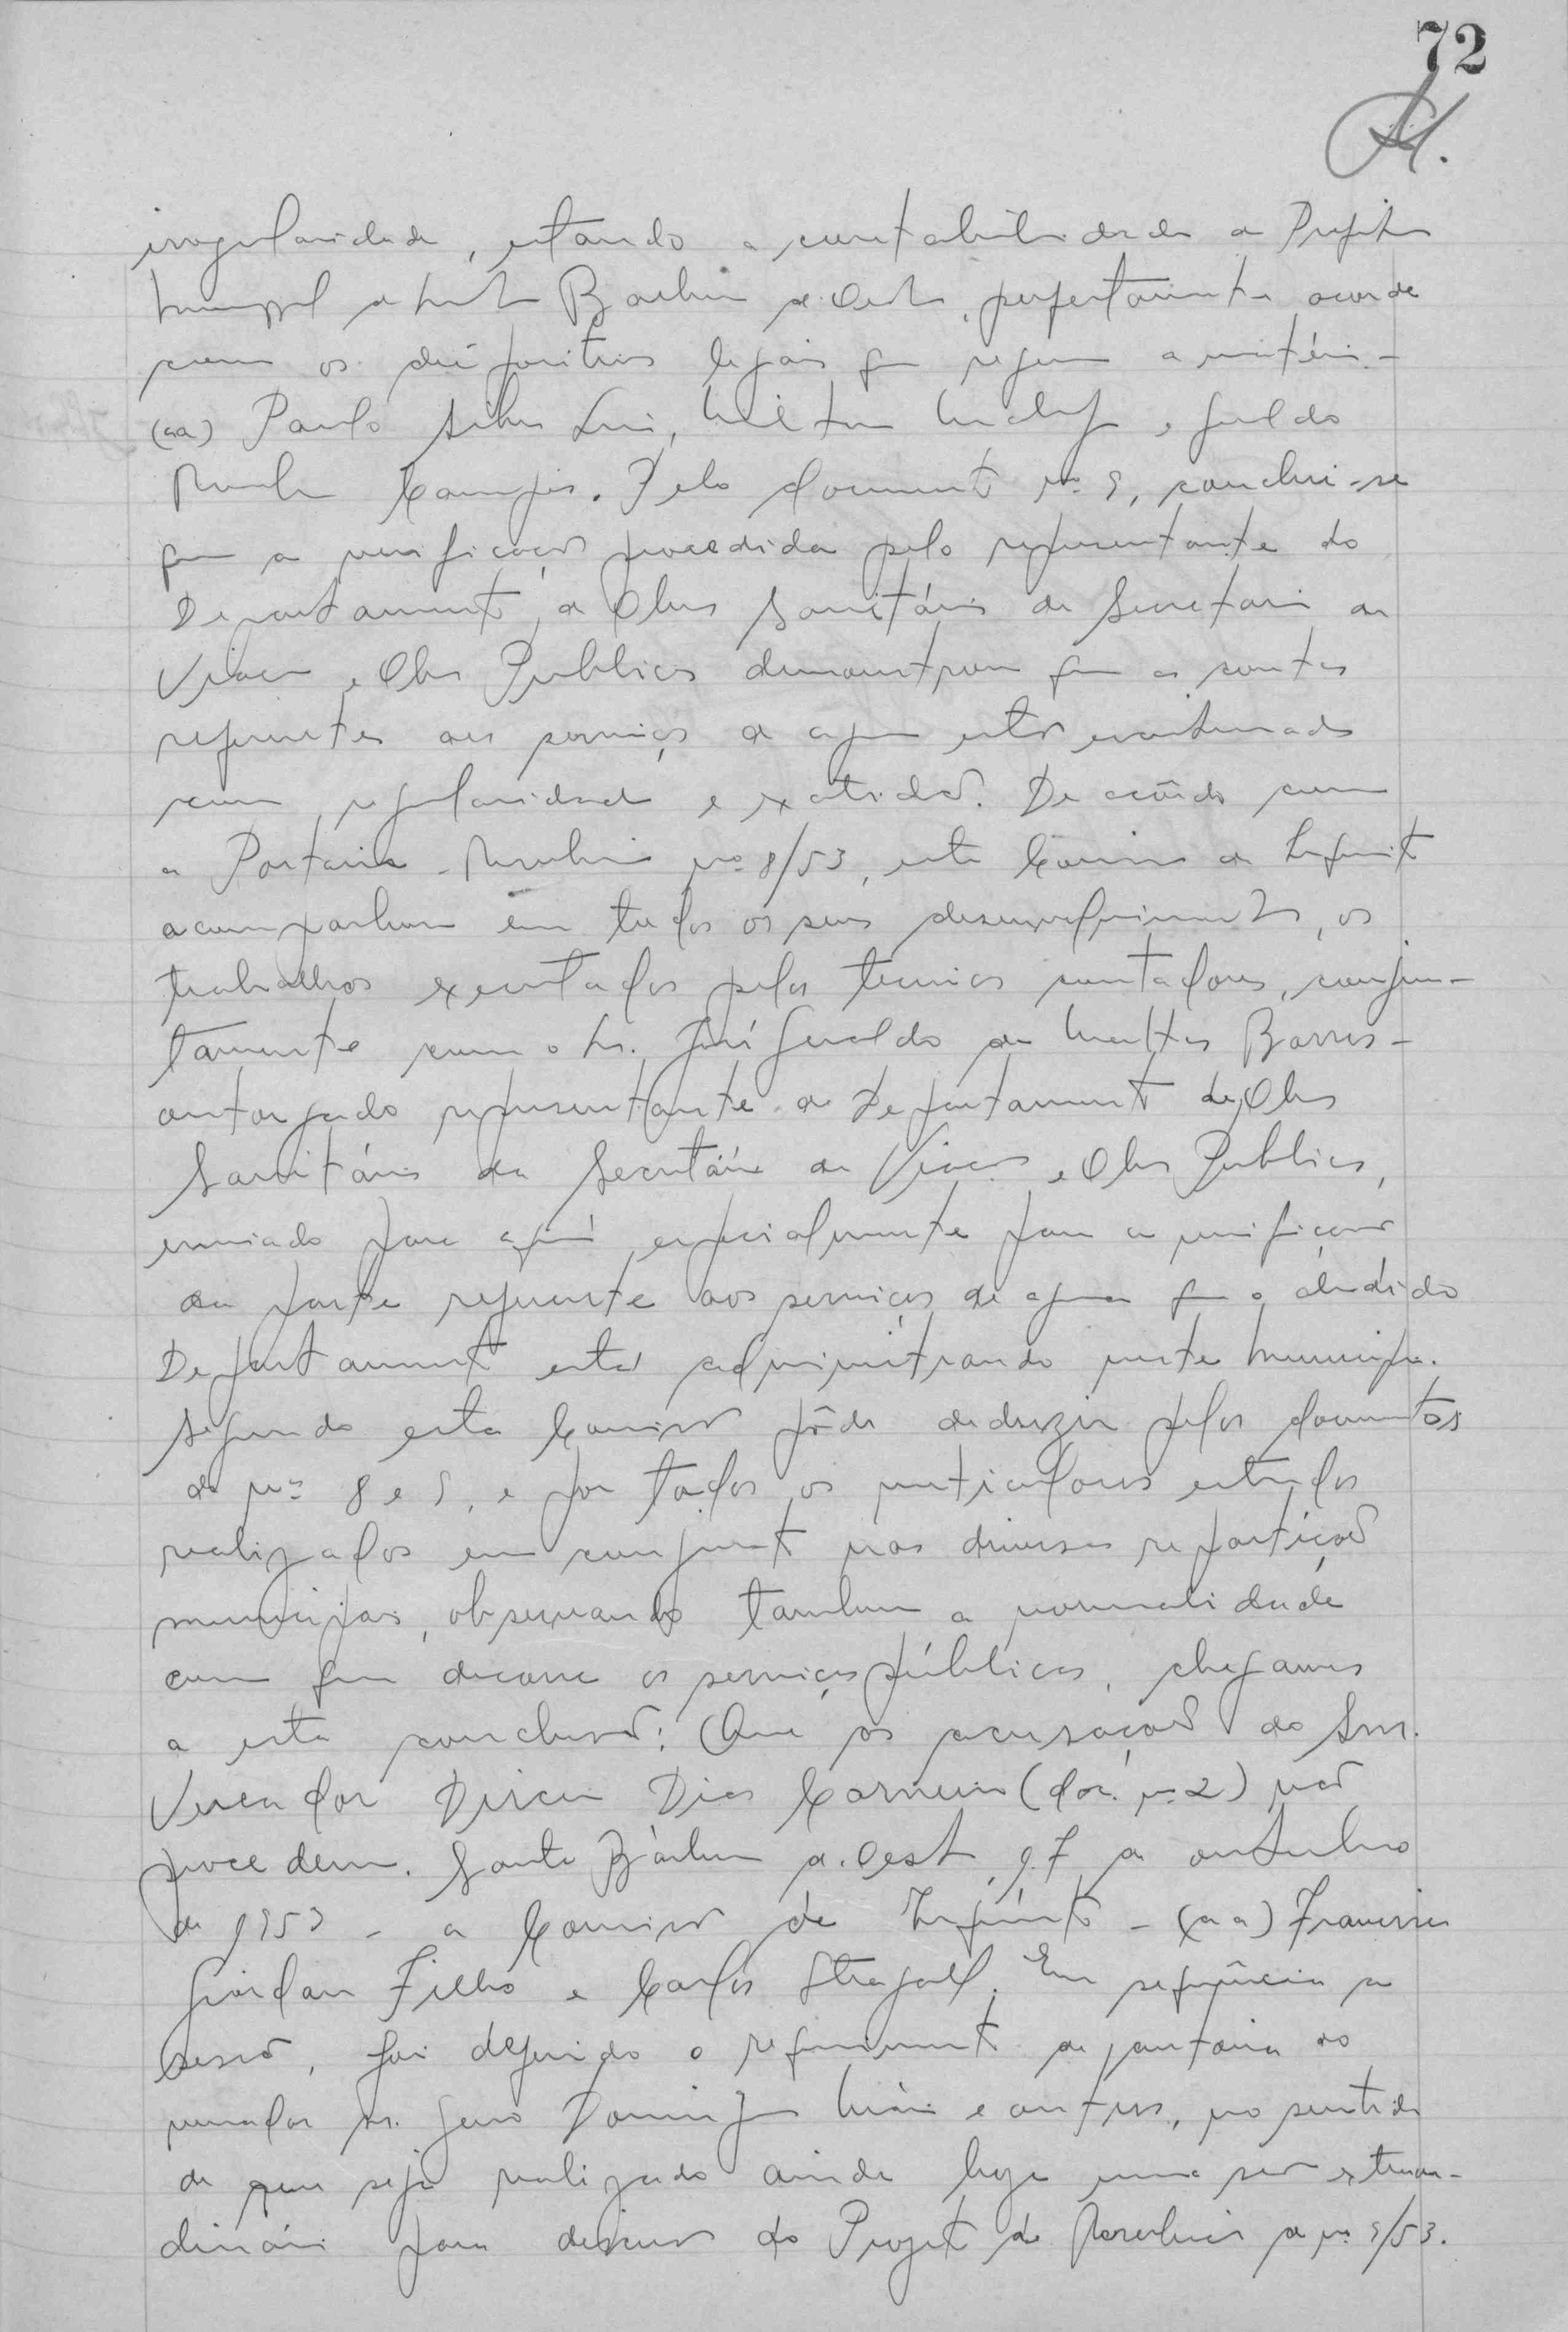 72
irregularidade, estando a contabilidade da Prefeitura
Municipal de Santa Barbara d'Oeste, perfeitamente acorde
com os dispositivos legais que regem a matéria -
(aa) Paulo Silva, Milton e Geraldo
Campos. Pelo documento nº 9, conclui-se
que a verificação procedida pelo representante do
Departamento de Obras Sanitárias da Secretaria da
Viação e Obras Publicas demonstram que as contas
referentes aos serviços de agua estão escrituradas
com regularidade e exatidão. De acôrdo com
a Portaria-Resolução nº 8/53, esta Comissão de Inquerito
acompanhou em todos os seus desenvolvimentos, os
trabalhos executados pelos tecnicos contadores, conjun-
tamente com o Sr. José Geraldo de Mattos Barros -
outorgado representante do Departamento de Obras
Sanitárias da Secretária da Viação e Obras Publicas,
enviado para aqui especialmente para a verificação
da parte referente aos serviços de agua que o aludido
Departamento está administrando neste Municipio.
Segundo esta Comissão pôde deduzir pelos documentos
de nº 8 e 9, e por todos os particulares estudos
realizados em conjunto nas diversas repartições
municipais, observando tambem a normalidade
com que decorre os serviços públicos, chegamos
a esta conclusão: Que as acusações do Snr.
Vereador Dirceu Dias Carneiro (doc. nº 2) não
procedem. Santa Bárbara d'Oeste, 27 de outubro
de 1953 - a Comissão de Inquérito - (aa) Francisco
Giordan Filho e Carlos. Em sequência da
sessão, foi deferido o requerimento de autoria do
vereador Sr. Domingues e outros, no sentido
de que seja realizado ainda hoje uma sessão extraor-
dinária para discussão do Projeto de Resolução de nº 9/53.